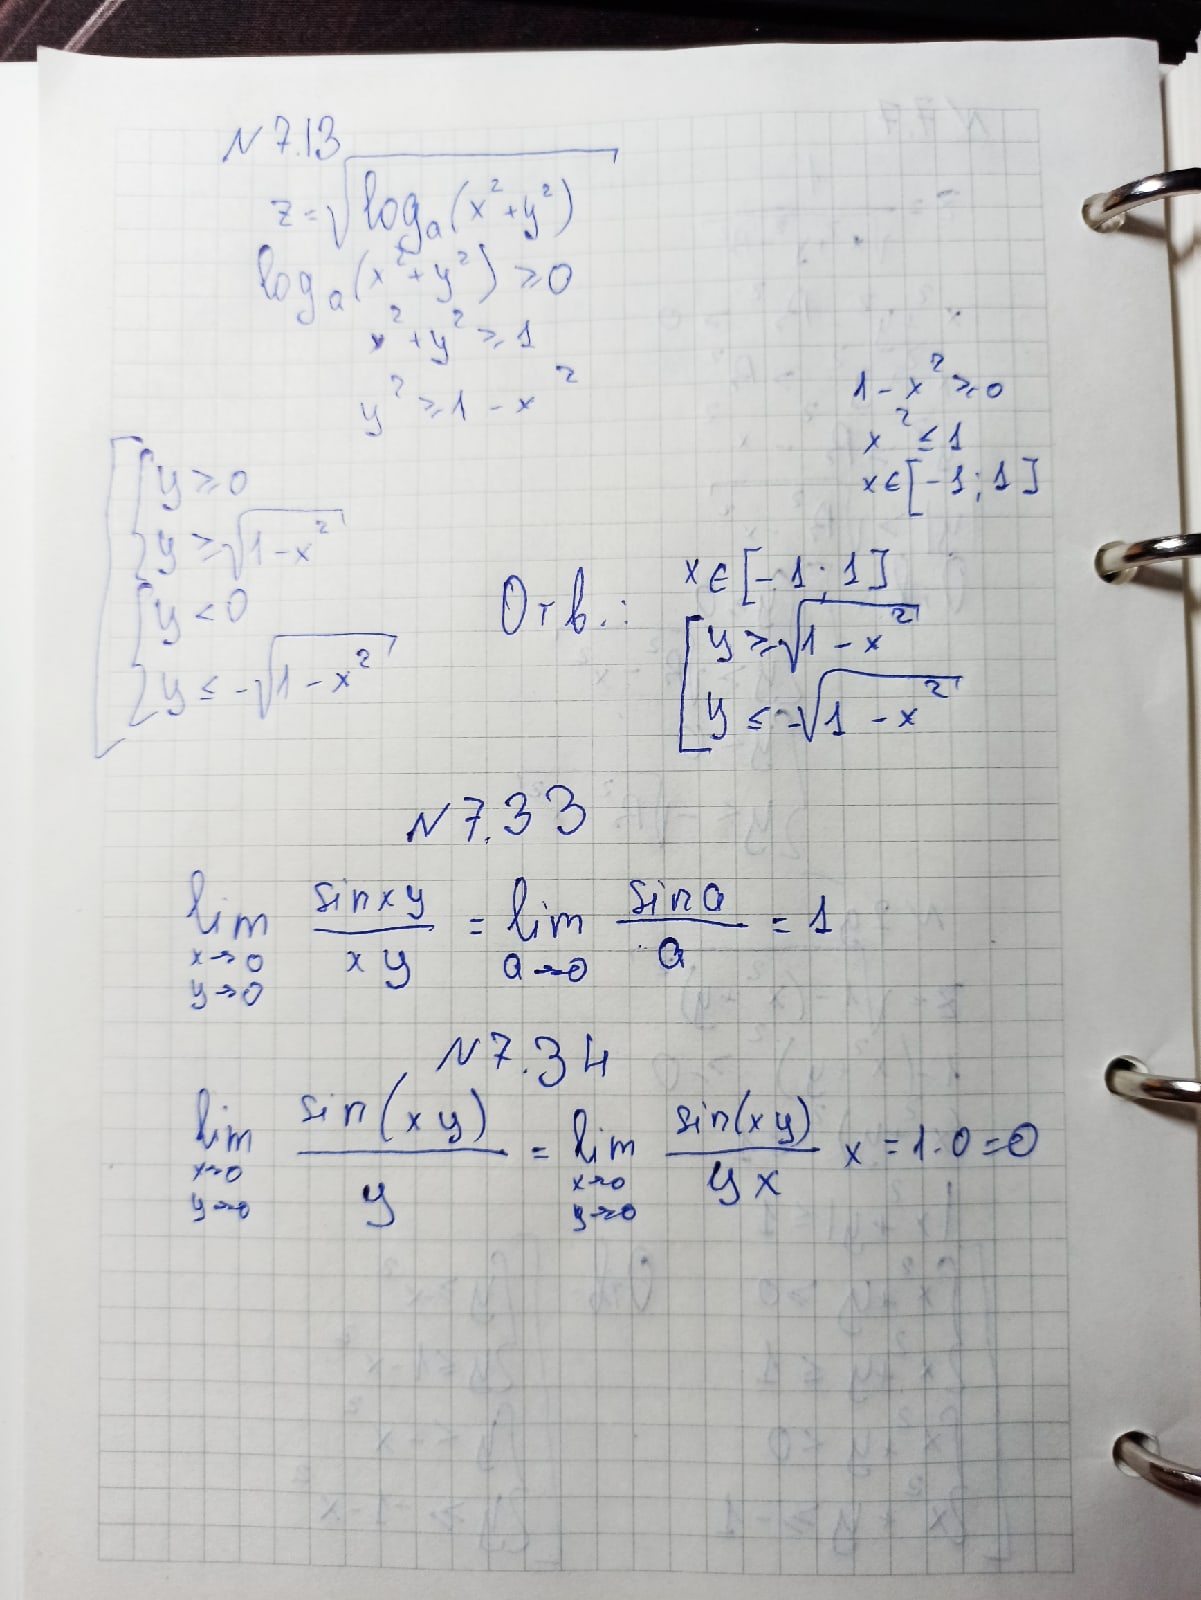 N 7.13
z = √(log_a(x² + y²))
log_a(x² + y²) ≥ 0
x² + y² ≥ 1
y² ≥ 1 - x²
1 - x² ≥ 0
x² ≤ 1
x ∈ [-1; 1]
[ { y ≥ 0
y ≥ √(1 - x²)
{ y < 0
y ≤ -√(1 - x²)
Отв.: x ∈ [-1; 1]
[ y ≥ √(1 - x²)
y ≤ -√(1 - x²)
N 7.33
lim x→0 y→0 sin xy / xy = lim a→0 sin a / a = 1
N 7.34
lim x→0 y→0 sin(xy) / y = lim x→0 y→0 sin(xy) / yx x = 1·0 = 0